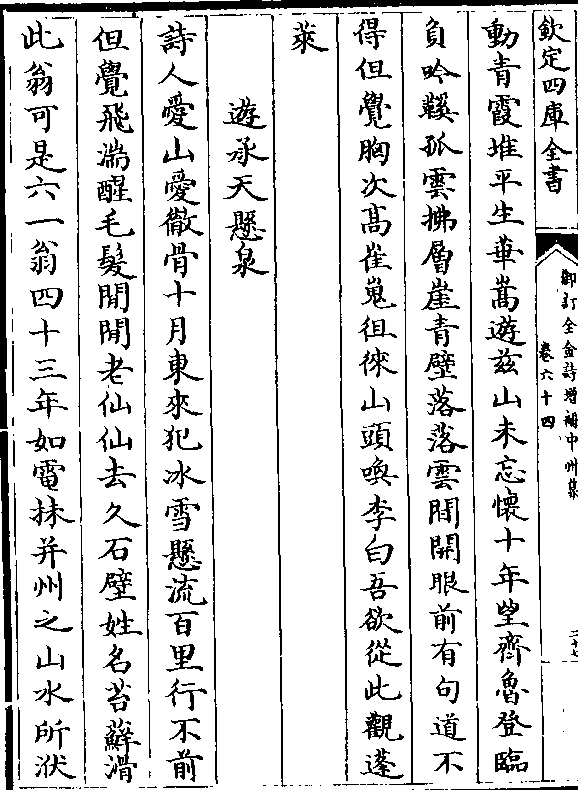 欽定四庫全書
御訂全金詩增補中州集
卷六十四
動青霞堆平生華嵩遊兹山未忘懷十年望齊魯登臨
負吟鞵孤雲拂層崖青壁落落雲間開眼前有句道不
得但覺胸次髙崔嵬徂徠山頭喚李白吾欲從此觀蓬
萊
遊承天懸泉
詩人愛山愛徹骨十月東來犯冰雪懸流百里行不前
但覺飛湍醒毛髮閒閒老仙仙去久石壁姓名苔蘚滑
此翁可是六一翁四十三年如電抹并州之山水所洑